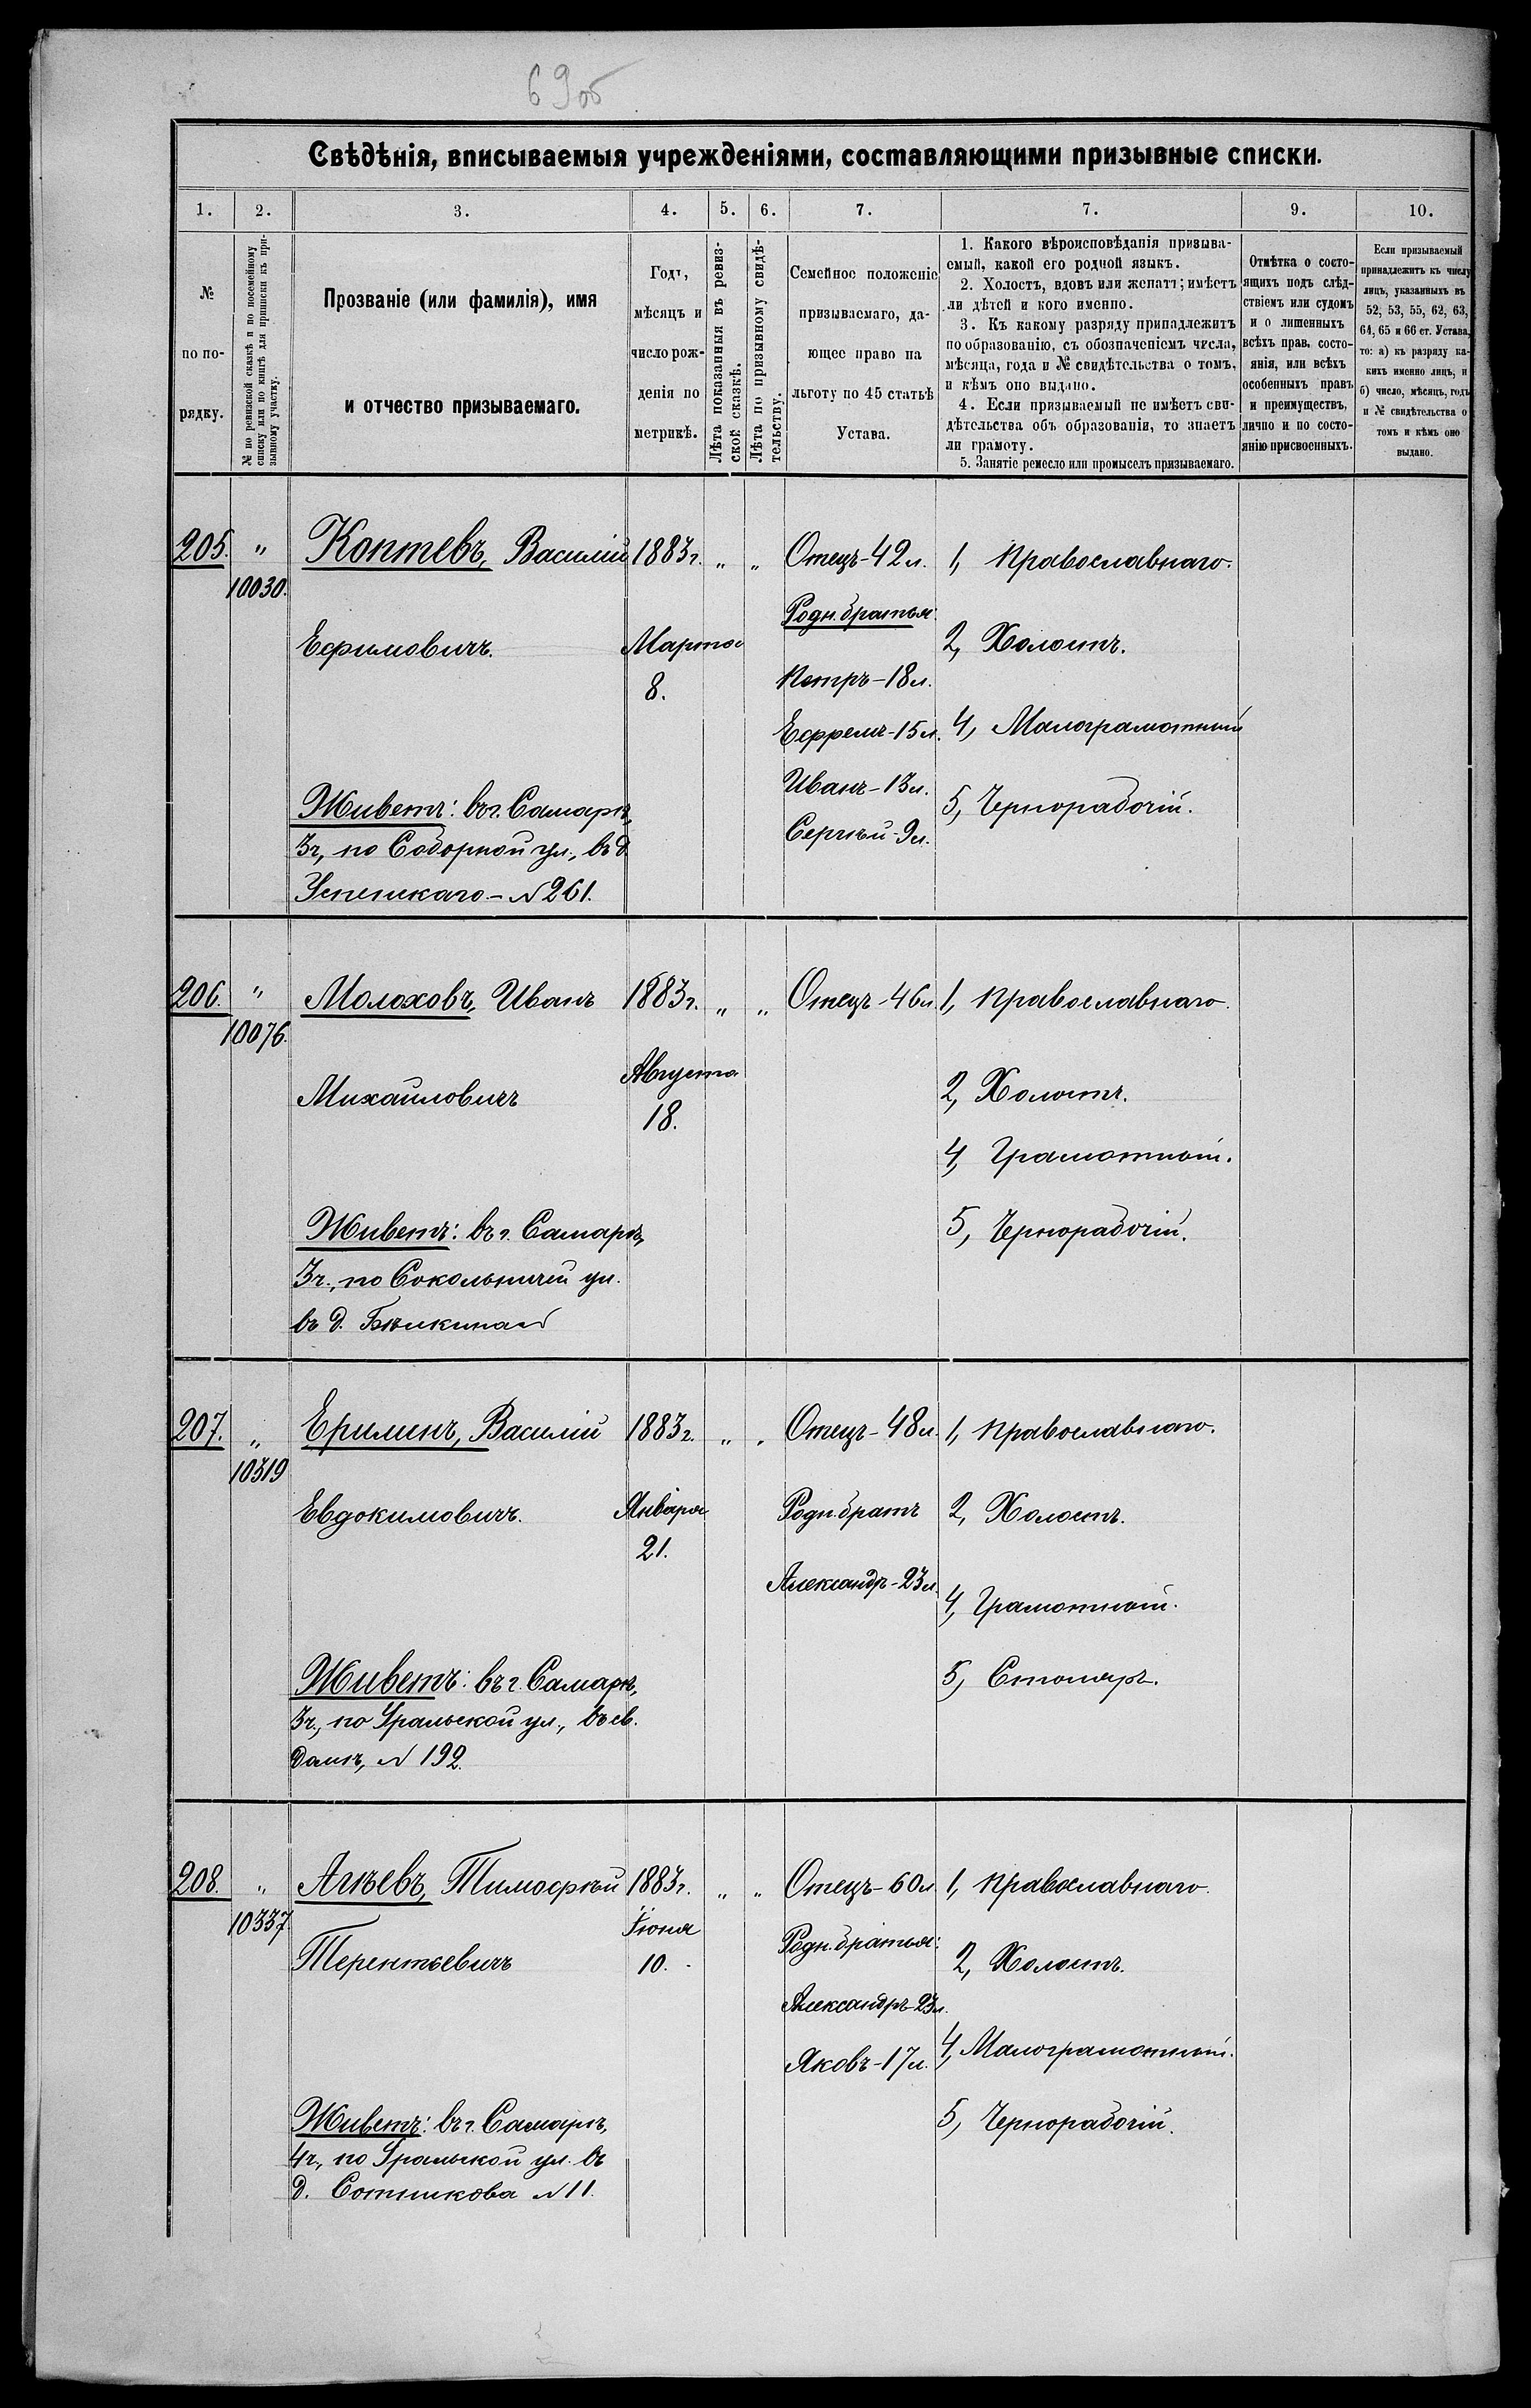 69об
Свѣдѣнія, вписываемыя учрежденіями, составляющими призывные списки.
1. 2. 3. 4. 5. 6. 7. 7. 9. 10.
№ по порядку.
№ по ревизской сказкѣ и по посемейному
списку или по книгѣ для приписки къ при-
зывному участку.
Прозваніе (или фамилія), имя
и отчество призываемаго.
Годъ,
мѣсяцъ и
число рож-
денія по
метрикѣ.
Лѣта показанныя въ ревиз-
ской сказкѣ.
Лѣта по призывному свидѣ-
тельству.
Семейное положеніе
призываемаго, да-
ющее право на
льготу по 45 статьѣ
Устава.
1. Какого вѣроисповѣданія призыва-
емый, какой его родной языкъ.
2. Холостъ, вдовъ или женатъ; имѣетъ
ли дѣтей и кого именно.
3. Къ какому разряду принадлежитъ
по образованію, съ обозначеніемъ числа,
мѣсяца, года и № свидѣтельства о томъ,
и кѣмъ оно выдано.
4. Если призываемый не имѣетъ сви-
дѣтельства объ образованіи, то знаетъ
ли грамоту.
5. Занятіе ремесло или промыселъ призываемаго.
Отмѣтка о состо-
ящихъ подъ слѣд-
ствіемъ или судомъ
и о лишенныхъ
всѣхъ прав. состо-
янія, или всѣхъ
особенныхъ правъ
и преимуществъ,
лично и по состо-
янію присвоенныхъ.
Если призываемый
принадлежитъ къ числу
лицъ, указанныхъ въ
52, 53, 55, 62, 63,
64, 65 и 66 ст. Устава,
то: а) къ разряду ка-
кихъ именно лицъ, и
б) число, мѣсяцъ, годъ
и № свидѣтельства о
томъ и кѣмъ оно
выдано.
205. " Коптевъ, Василій 1883г. " " Отецъ-42л. 1, Православнаго.
10030.
Родн. братья:
Ефимовичъ. Марта 2, Холостъ.
8. Петръ-18л.
Ефремъ-15л. 4, Малограмотный
Иванъ-13л.
Живетъ: въ г. Самарѣ, 5, Чернорабочій.
3ч., по Соборной ул., въ д. Сергѣй-9л.
Успенскаго-№ 261.
206. " Молоховъ, Иванъ 1883г. " " Отецъ-46л. 1, Православнаго.
10076.
Михайловичъ Августа 2, Холостъ.
18.
4, Грамотный.
Живетъ: въ г. Самарѣ, 5, Чернорабочій.
3ч., по Сокольничій ул.
въ д. Бѣлкина
207. " Ерилинъ, Василій 1883г. " " Отецъ-48л. 1, Православнаго.
10319
Евдокимовичъ. Января Родн. братъ 2, Холостъ.
21.
Александръ-23л. 4, Грамотный.
Живетъ: въ г. Самарѣ, 5, Столяръ.
3ч., по Уральской ул., въ св.
домѣ, № 192.
208. " Агѣевъ, Тимофѣй 1883г. " " Отецъ-60л. 1, Православнаго.
10337. Іюня Родн. братья:
Терентьевичъ 10. 2, Холостъ.
Александръ-23л.
Яковъ-17л. 4, Малограмотный.
Живетъ: въ г. Самарѣ, 5, Чернорабочій.
4ч., по Уральской ул. въ
д. Сотникова № 11.